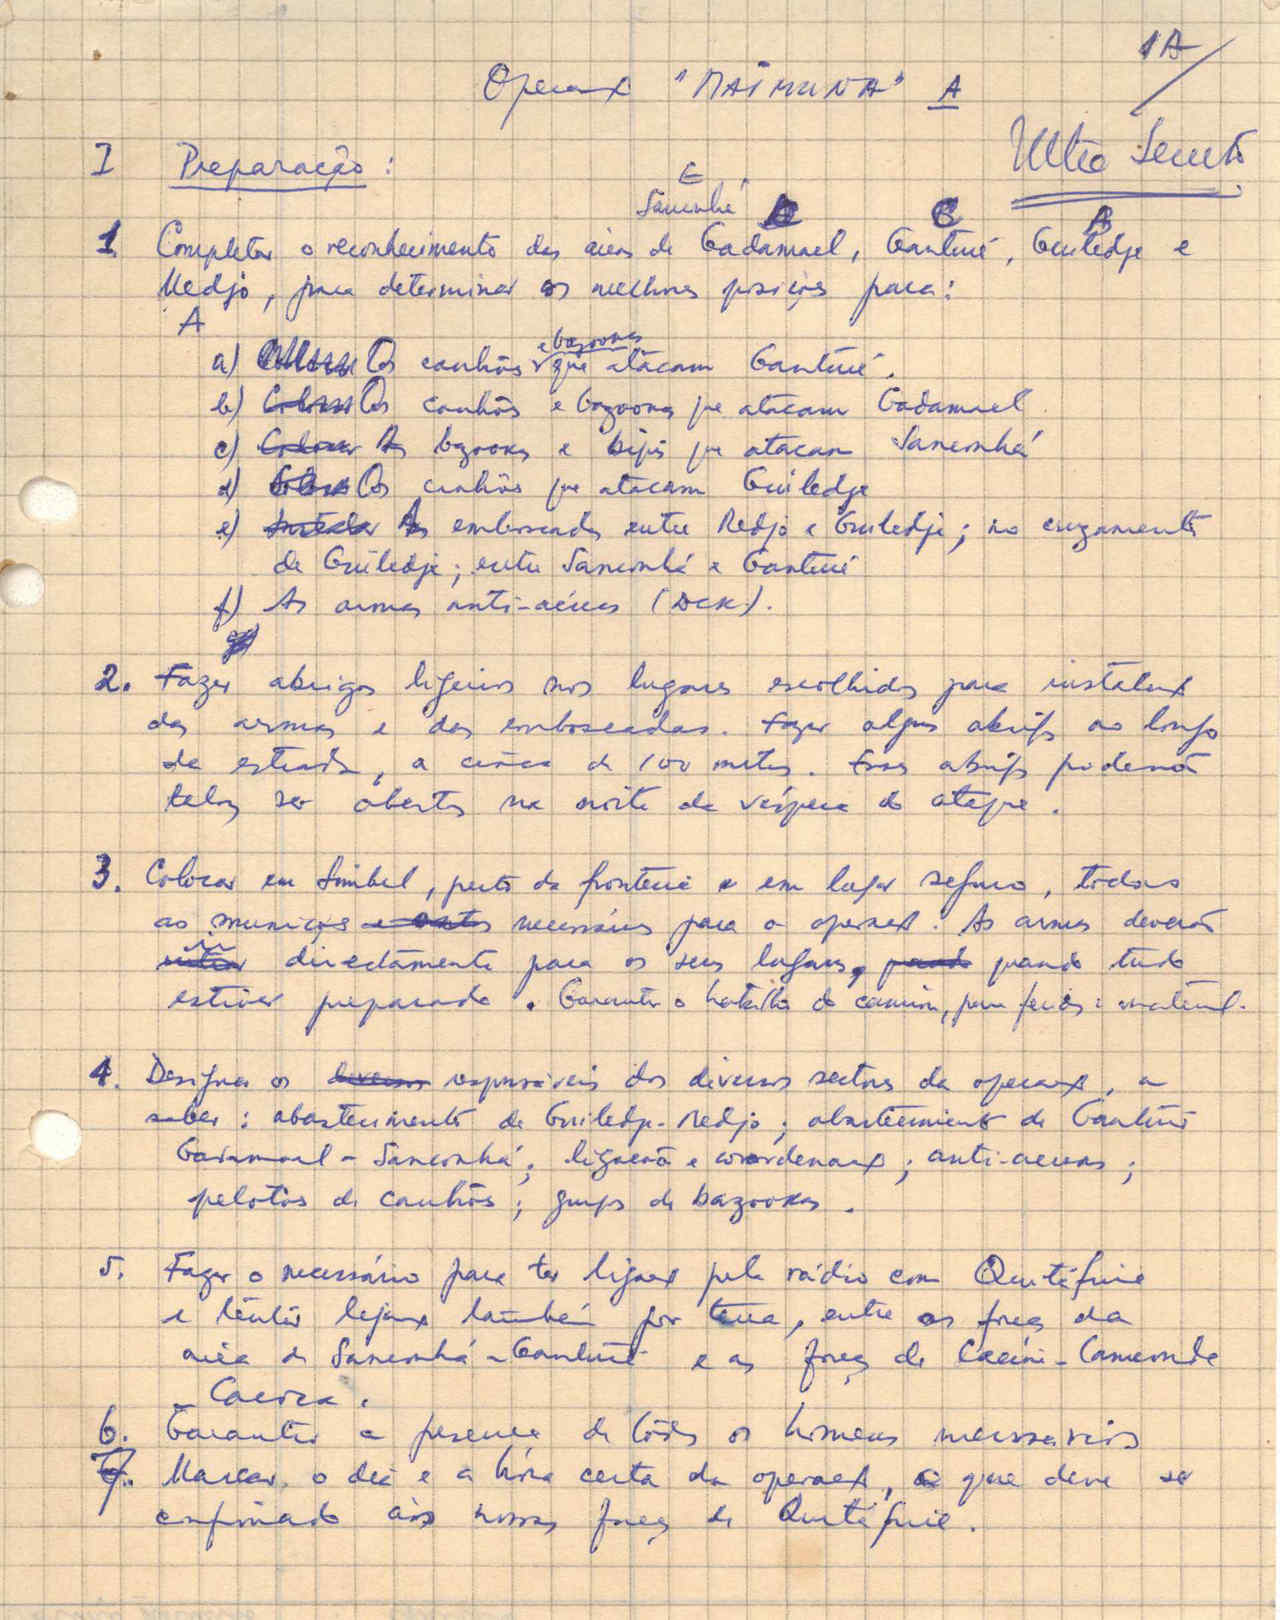 1A
Operação "MAIMUNA" A
Ultra Secreto
I Preparação :
E
Sanconhá B A
1 Completar o reconhecimento das áreas de Gadamael, Ganturé, Guiledje e
Medjo, para determinar as melhores posições para:
A
e bazookas
a) Os canhões que atacam Ganturé.
b) Colocar Os canhões e bazookas que atacam Gadamael.
c) Colocar As bazookas e bipés que atacam Sanconhá
d) Os canhões que atacam Guiledge
e) Instalar As emboscadas entre Medjo e Guiledje; no cruzamento
de Guiledje; entre Sanconhá e Ganturé
f) As armas anti-aéreas (DCK).
2. Fazer abrigos ligeiros nos lugares escolhidos para instalação
das armas e das emboscadas. Fazer alguns abrigos ao longo
da estrada, a cerca de 100 metros. Esses abrigos poderão
talvez ser abertos na noite da véspera do ataque.
3. Colocar em Simbel, perto da fronteira e em lugar seguro, todas
as munições necessárias para a operação. As armas deverão
ir directamente para os seus lugares, quando tudo
estiver preparado. Garantir o trabalho do camion, para feridos e material.
4. Designar os diversos responsáveis dos diversos sectores da operação, a
saber: abastecimento de Guiledje-Medjo; abastecimento de Ganturé
Gadamael - Sanconhá; ligação e coordenação; anti-aéreas;
pelotões de canhões; grupos de bazookas.
5. Fazer o necessário para ter ligação pela rádio com Quitáfine
e tentar ligação também por terra, entre as forças da
área de Sanconhá - Ganturé e as forças de Cacine - Cameconde
- Cacoca.
6. Garantir a presença de todos os homens necessários
7. Marcar o dia e a hora certa da operação, que deve ser
confirmado às nossas forças de Quitáfine.